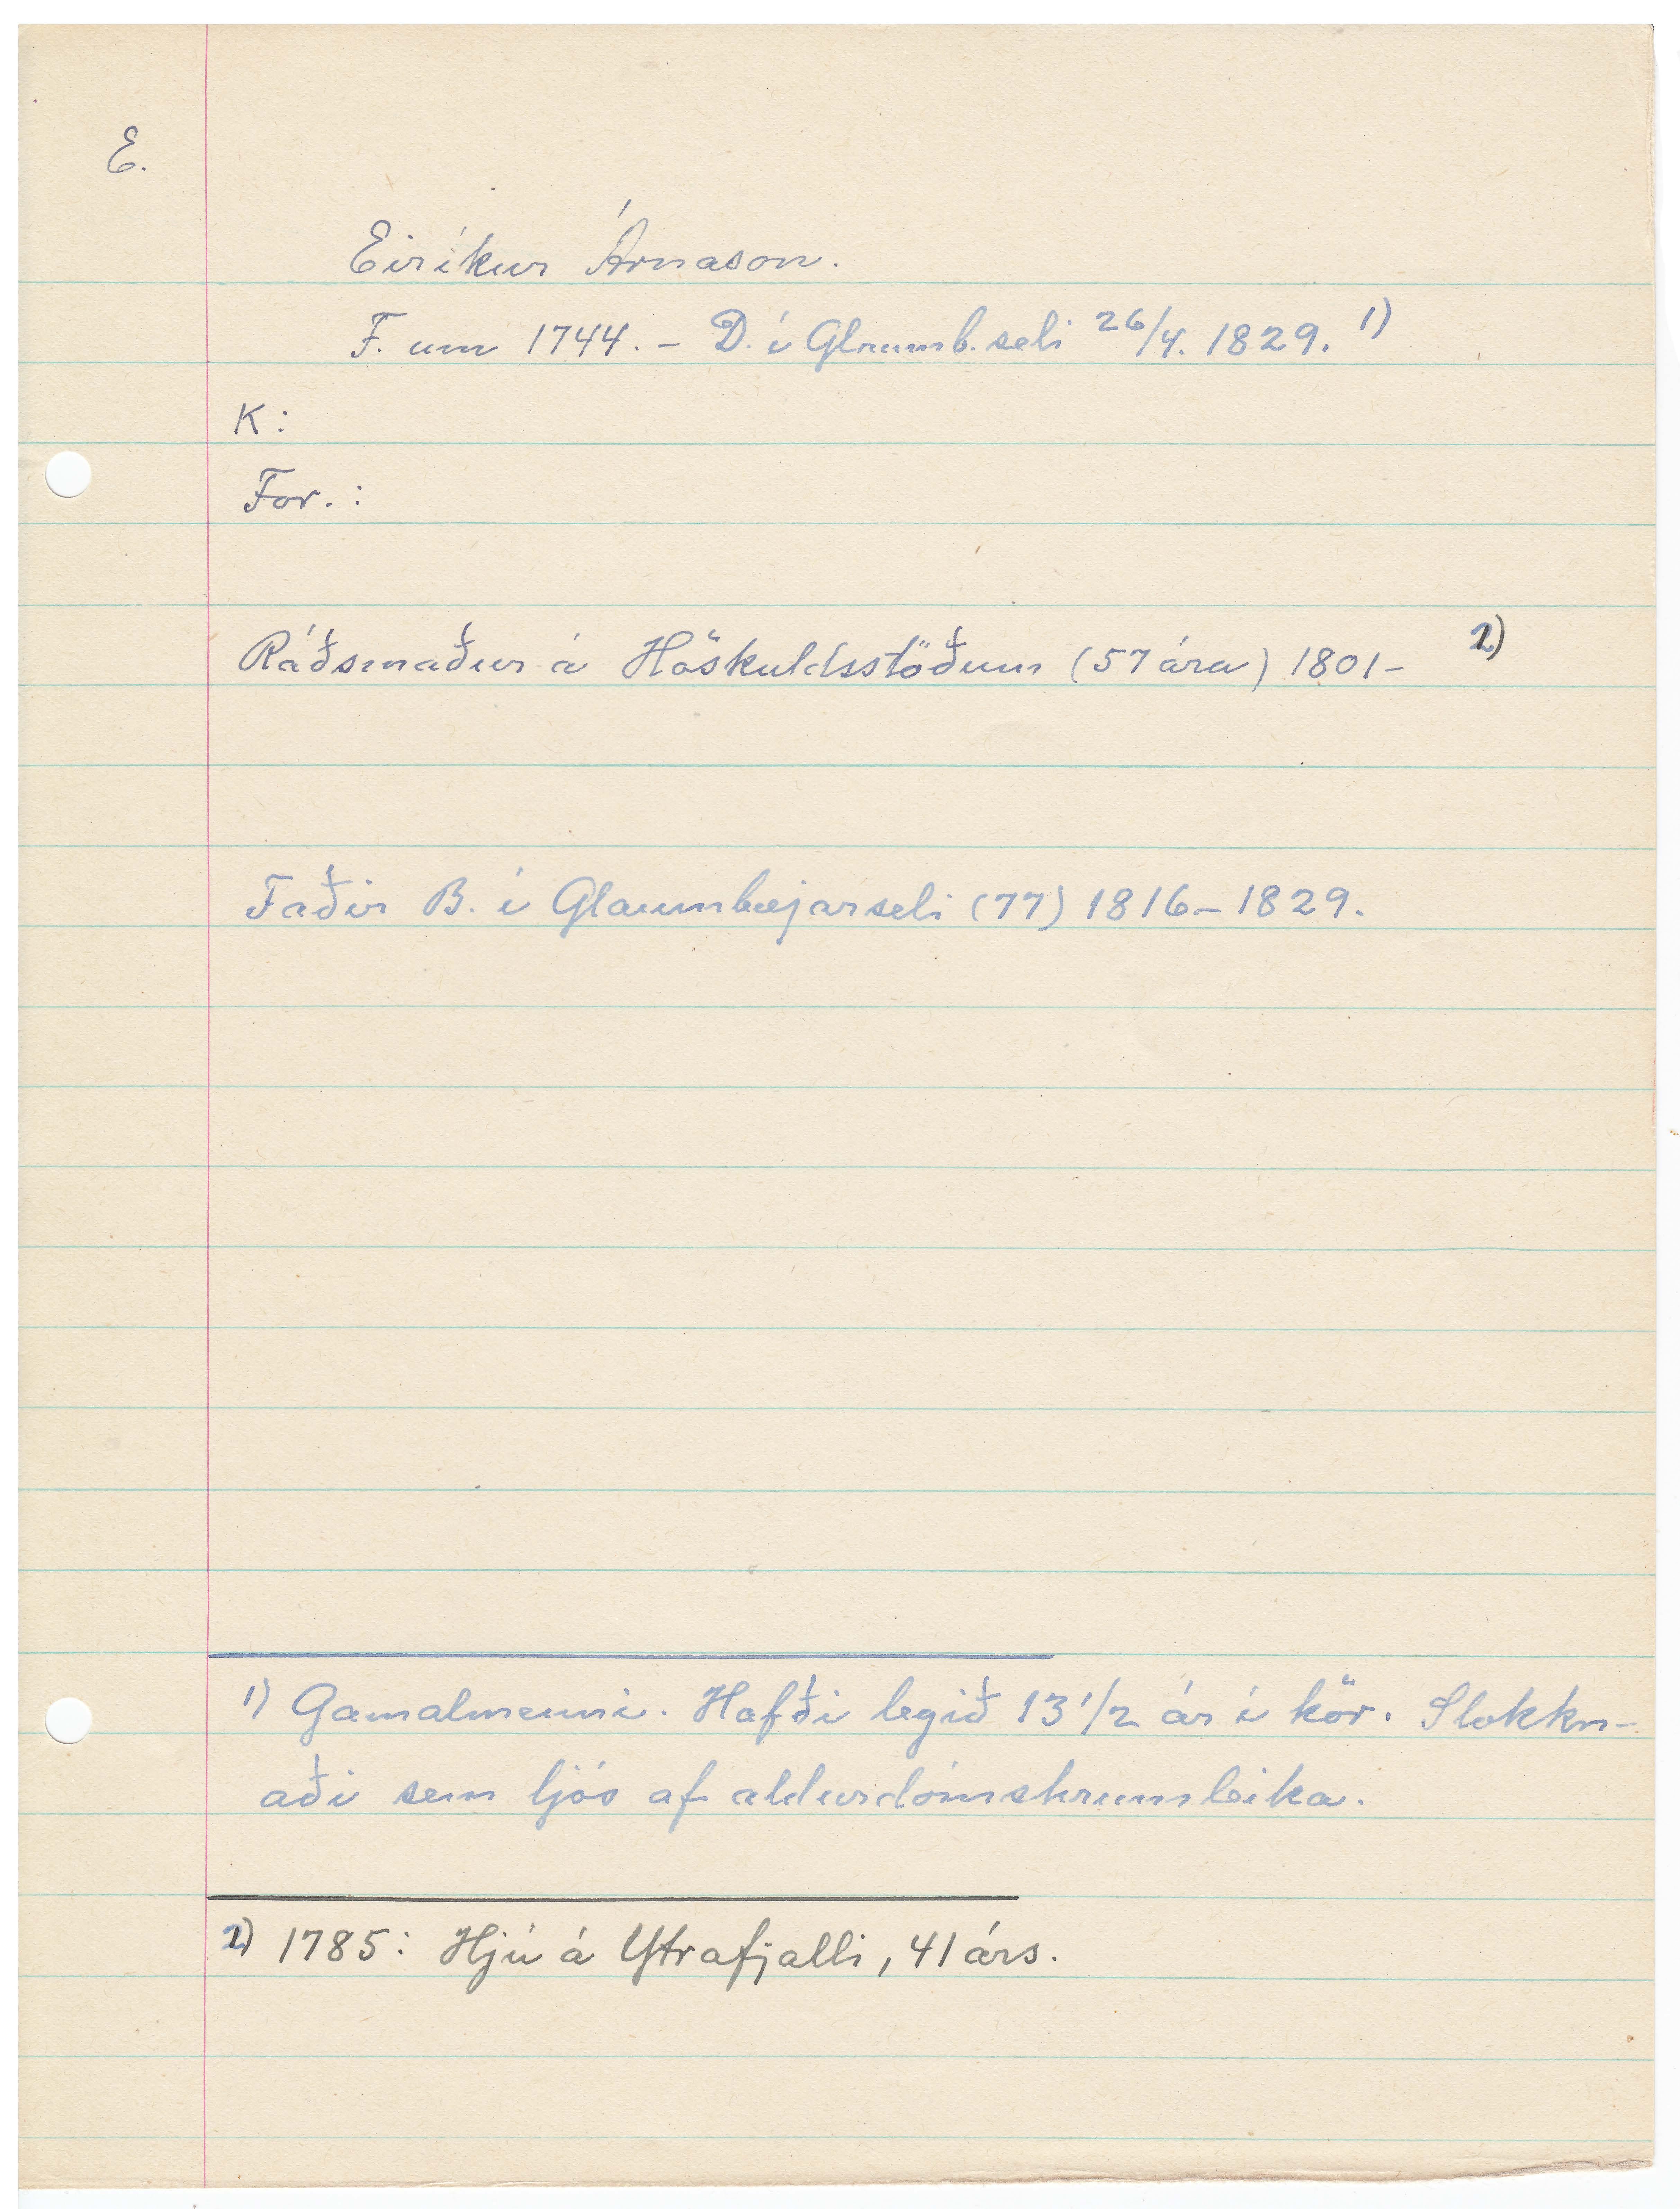 E.
Eiríkur Árnason.
F. um 1744. - D. í Glaumb.seli 26/4. 1829. 1)
K:
For. :
Ráðsmaður á Höskuldsstöðum (57 ára) 1801- 2)
Faðir B. í Glaumbæjarseli (77) 1816-1829.
1) Gamalmenni. Hafði legið 13 1/2 ár í kör. Slokkn-
aði sem ljós af aldurdómshrumleika.
2) 1785: Hjú á Ytrafjalli, 41 árs.